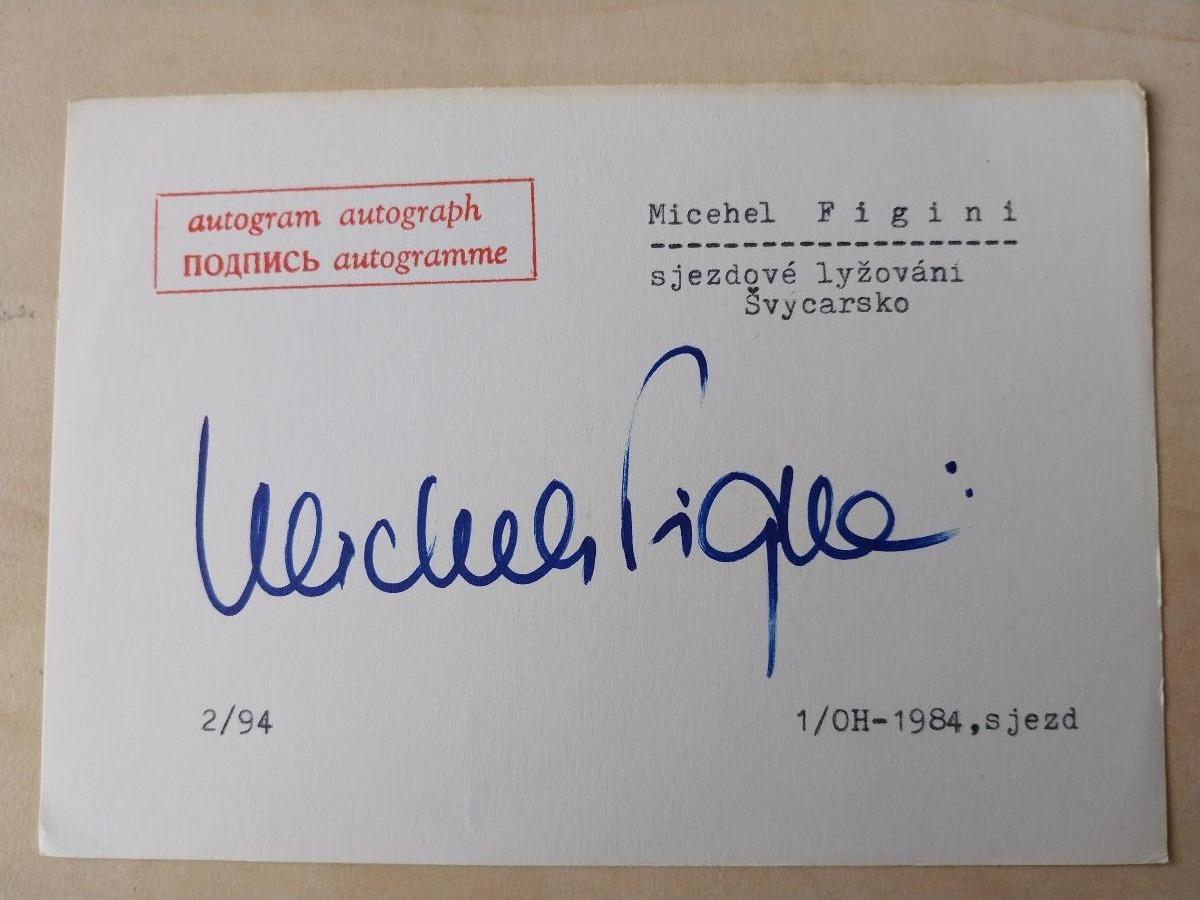 autogram autograph
ПОДПИСЬ autogramme
Micehel Figini
sjezdové lyžování
Švycarsko
Michela Figini
2/94
1/OH-1984,sjezd